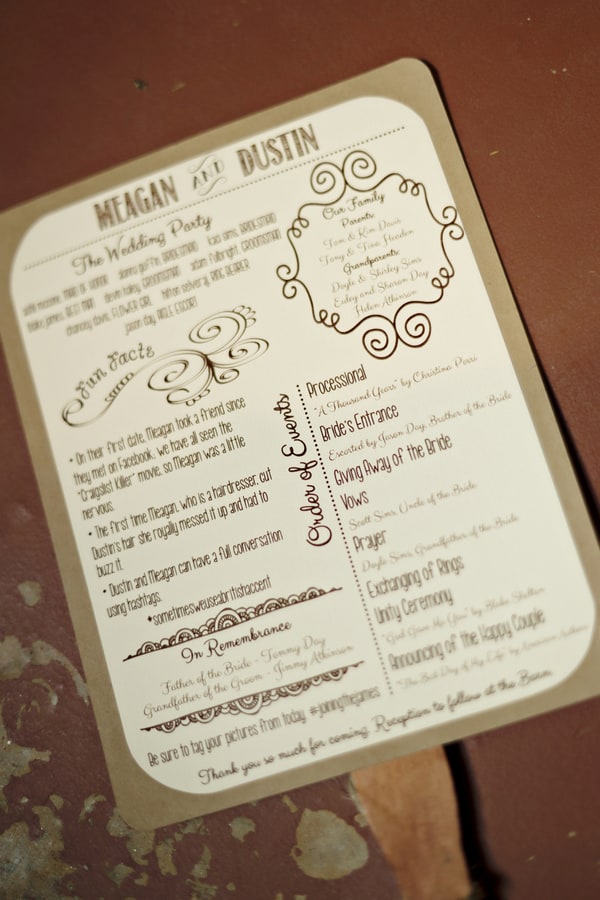 MEAGAN AND DUSTIN
The Wedding Party
MAID OF HONOR BRIDESMAID BRIDESMAID
BEST MAN GROOMSMAN adam fulbright, GROOMSMAN
chancey davis, FLOWER GIRL RING BEARER
jason day, AISLE ESCORT
Our Family
Parents:
Tom & Kim Davis
Tony & Tina
Grandparents:
Doyle & Shirley Sims
Euley and Sharon Day
Helen Atkinson
Fun Facts
• On their first date, Meagan took a friend since
they met on Facebook. we have all seen the
"Craigslist Killer" movie, so Meagan was a little
nervous.
• The first time Meagan, who is a hairdresser, cut
Dustin's hair she royally messed it up and had to
buzz it.
• Dustin and Meagan can have a full conversation
using hashtags.
#sometimesweuseabritishaccent
In Remembrance
Father of the Bride - Tommy Day
Grandfather of the Groom - Jimmy Atkinson
Order of Events
Processional
"A Thousand Years" by Christina Perri
Bride's Entrance
Escorted by Jason Day, Brother of the Bride
Giving Away of the Bride
Vows
Scott Sims, Uncle of the Bride
Prayer
Doyle Sims, Grandfather of the Bride
Exchanging of Rings
Unity Ceremony
"God Gave Me You" by Blake Shelton
Announcing of the Happy Couple
"The Best Day of My Life" by American Authors
Be sure to tag your pictures from today #joiningthejamies
Thank you so much for coming. Reception to follow at the Barn.